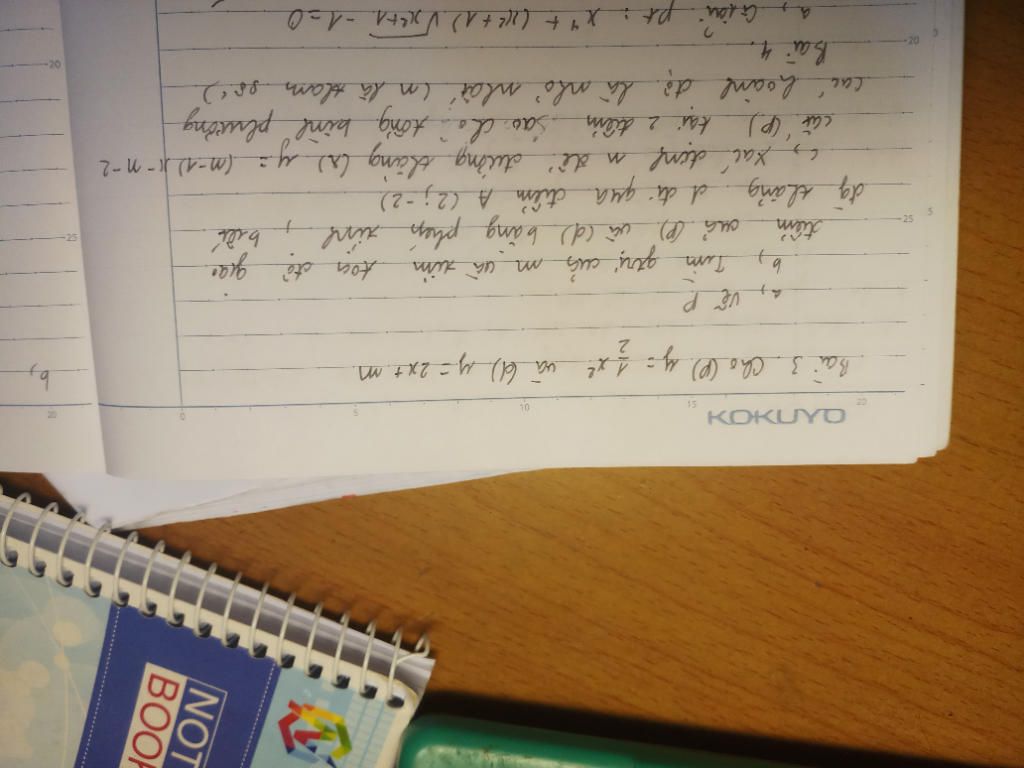 KOKUYO
Bài 3. Cho (P) y = 1/2 x² và (d) y = 2x + m
a, Vẽ P
b, Tìm gtrị của m và tìm toạ độ giao
điểm của (P) và (d) bằng phép tính, biết
đg thẳng d đi qua điểm A (2; -2)
c, Xác định n để đường thẳng (Δ) y = (n-1)x - n - 2
cắt (P) tại 2 điểm sao cho tổng bình phương
các hoành độ là nhỏ nhất (n là tham số)
Bài 4.
a, Giải pt: x⁴ + (x²+1) √x²+1 - 1 = 0
b,
NOT
BOO